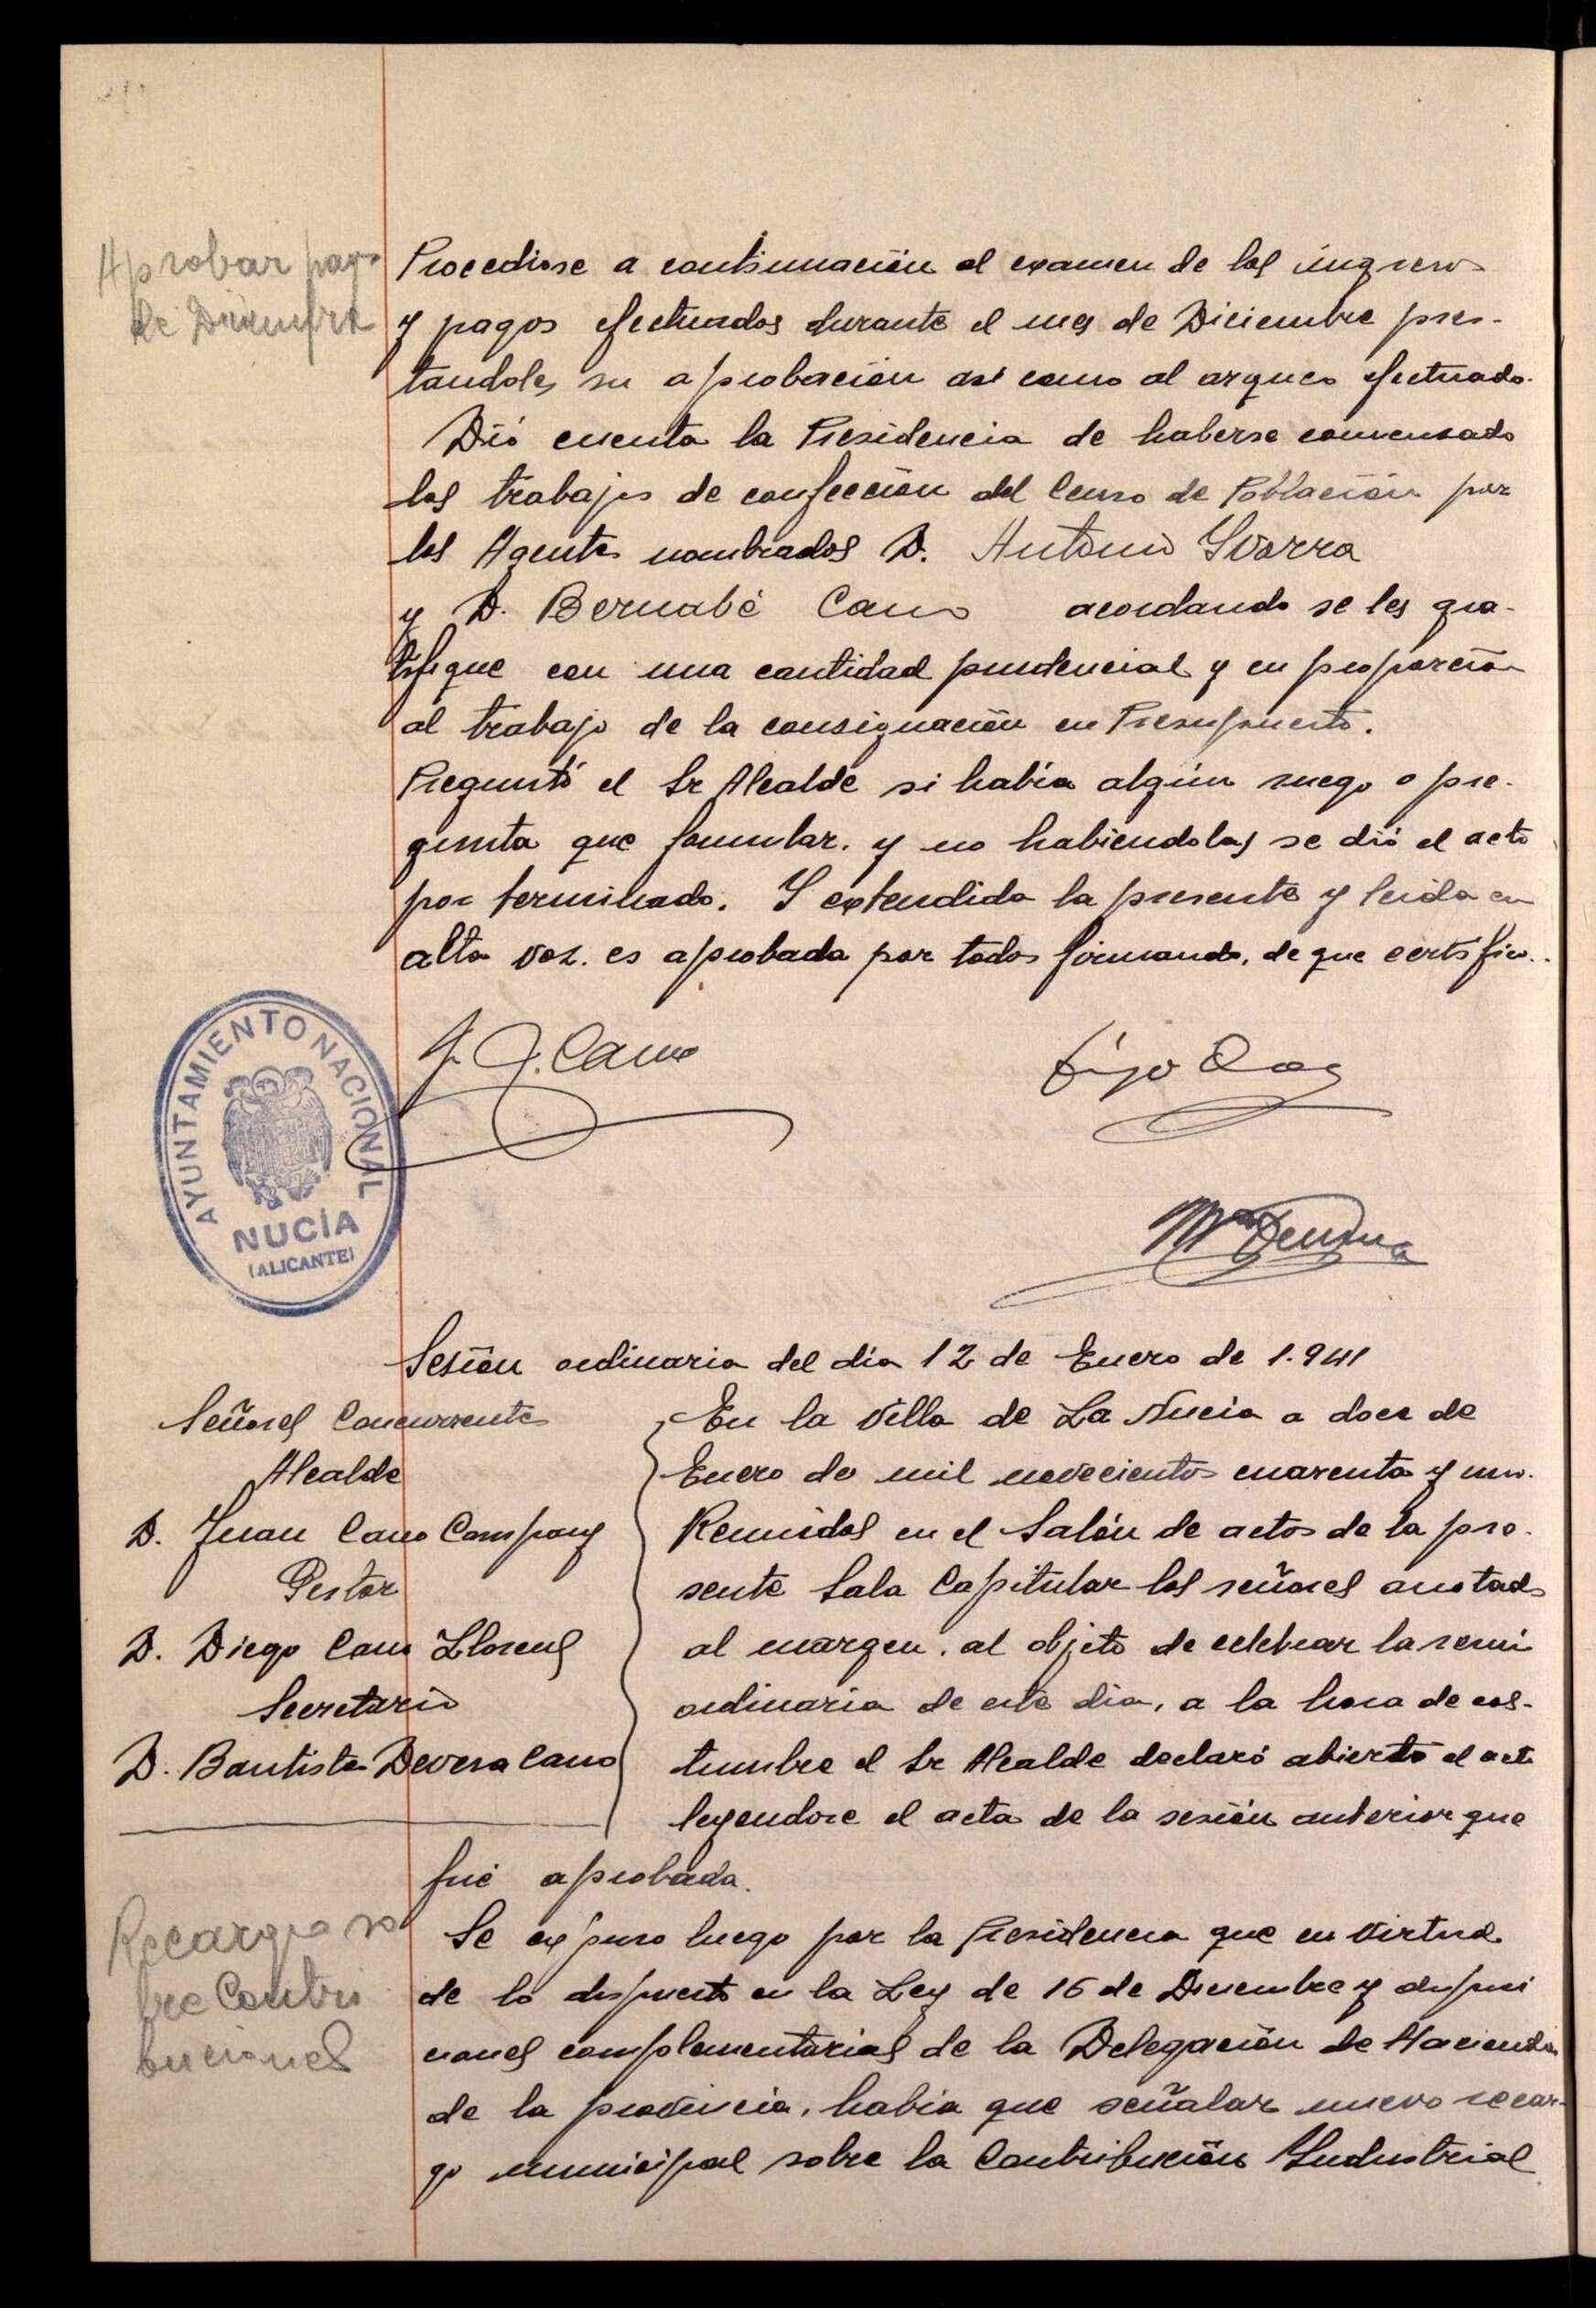 Aprobar pagos
de Diciembre
Procediose a continuación al examen de los ingresos
y pagos efectuados durante el mes de Diciembre pres-
tandoles su aprobación asi como al arqueo efectuado.
Dió cuenta la Presidencia de haberse comenzado
los trabajos de confección del Censo de Población por
los Agentes nombrados D. Antonio Ivorra
y D. Bernabé Cano acordando se les gra-
tifique con una cantidad prudencial y en proporción
al trabajo de la consignación en Presupuesto.
Preguntó el Sr Alcalde si había algún ruego o pre-
gunta que formular. y no habiendolas se dió el acto
por terminado. Y extendida la presente y leida en
alta voz. es aprobada por todos firmando, de que certifico.
J. J. Cano
AYUNTAMIENTO NACIONAL
NUCÍA
(ALICANTE)
Sesión ordinaria del dia 12 de Enero de 1.941
Señores Concurrentes
Alcalde
D. Juan Cano Company
Gestor
D. Diego Cano Llorens
Secretario
D. Bautista Devesa Cano
En la Villa de La Nucia a doce de
Enero de mil novecientos cuarenta y uno.
Reunidos en el Salón de actos de la pre-
sente Sala Capitular los señores anotados
al margen. al objeto de celebrar la sesión
ordinaria de este dia, a la hora de cos-
tumbre el Sr Alcalde declaró abierto el acto
leyendose el acta de la sesión anterior que
fué aprobada.
Recargo so
bre Contri
buciones
Se expuso luego por la Presidencia que en virtud
de lo dispuesto en la Ley de 16 de Diciembre y disposi
ciones complementarias de la Delegación de Hacienda
de la provincia, habia que señalar nuevo recar-
go municipal sobre la Contribución Industrial